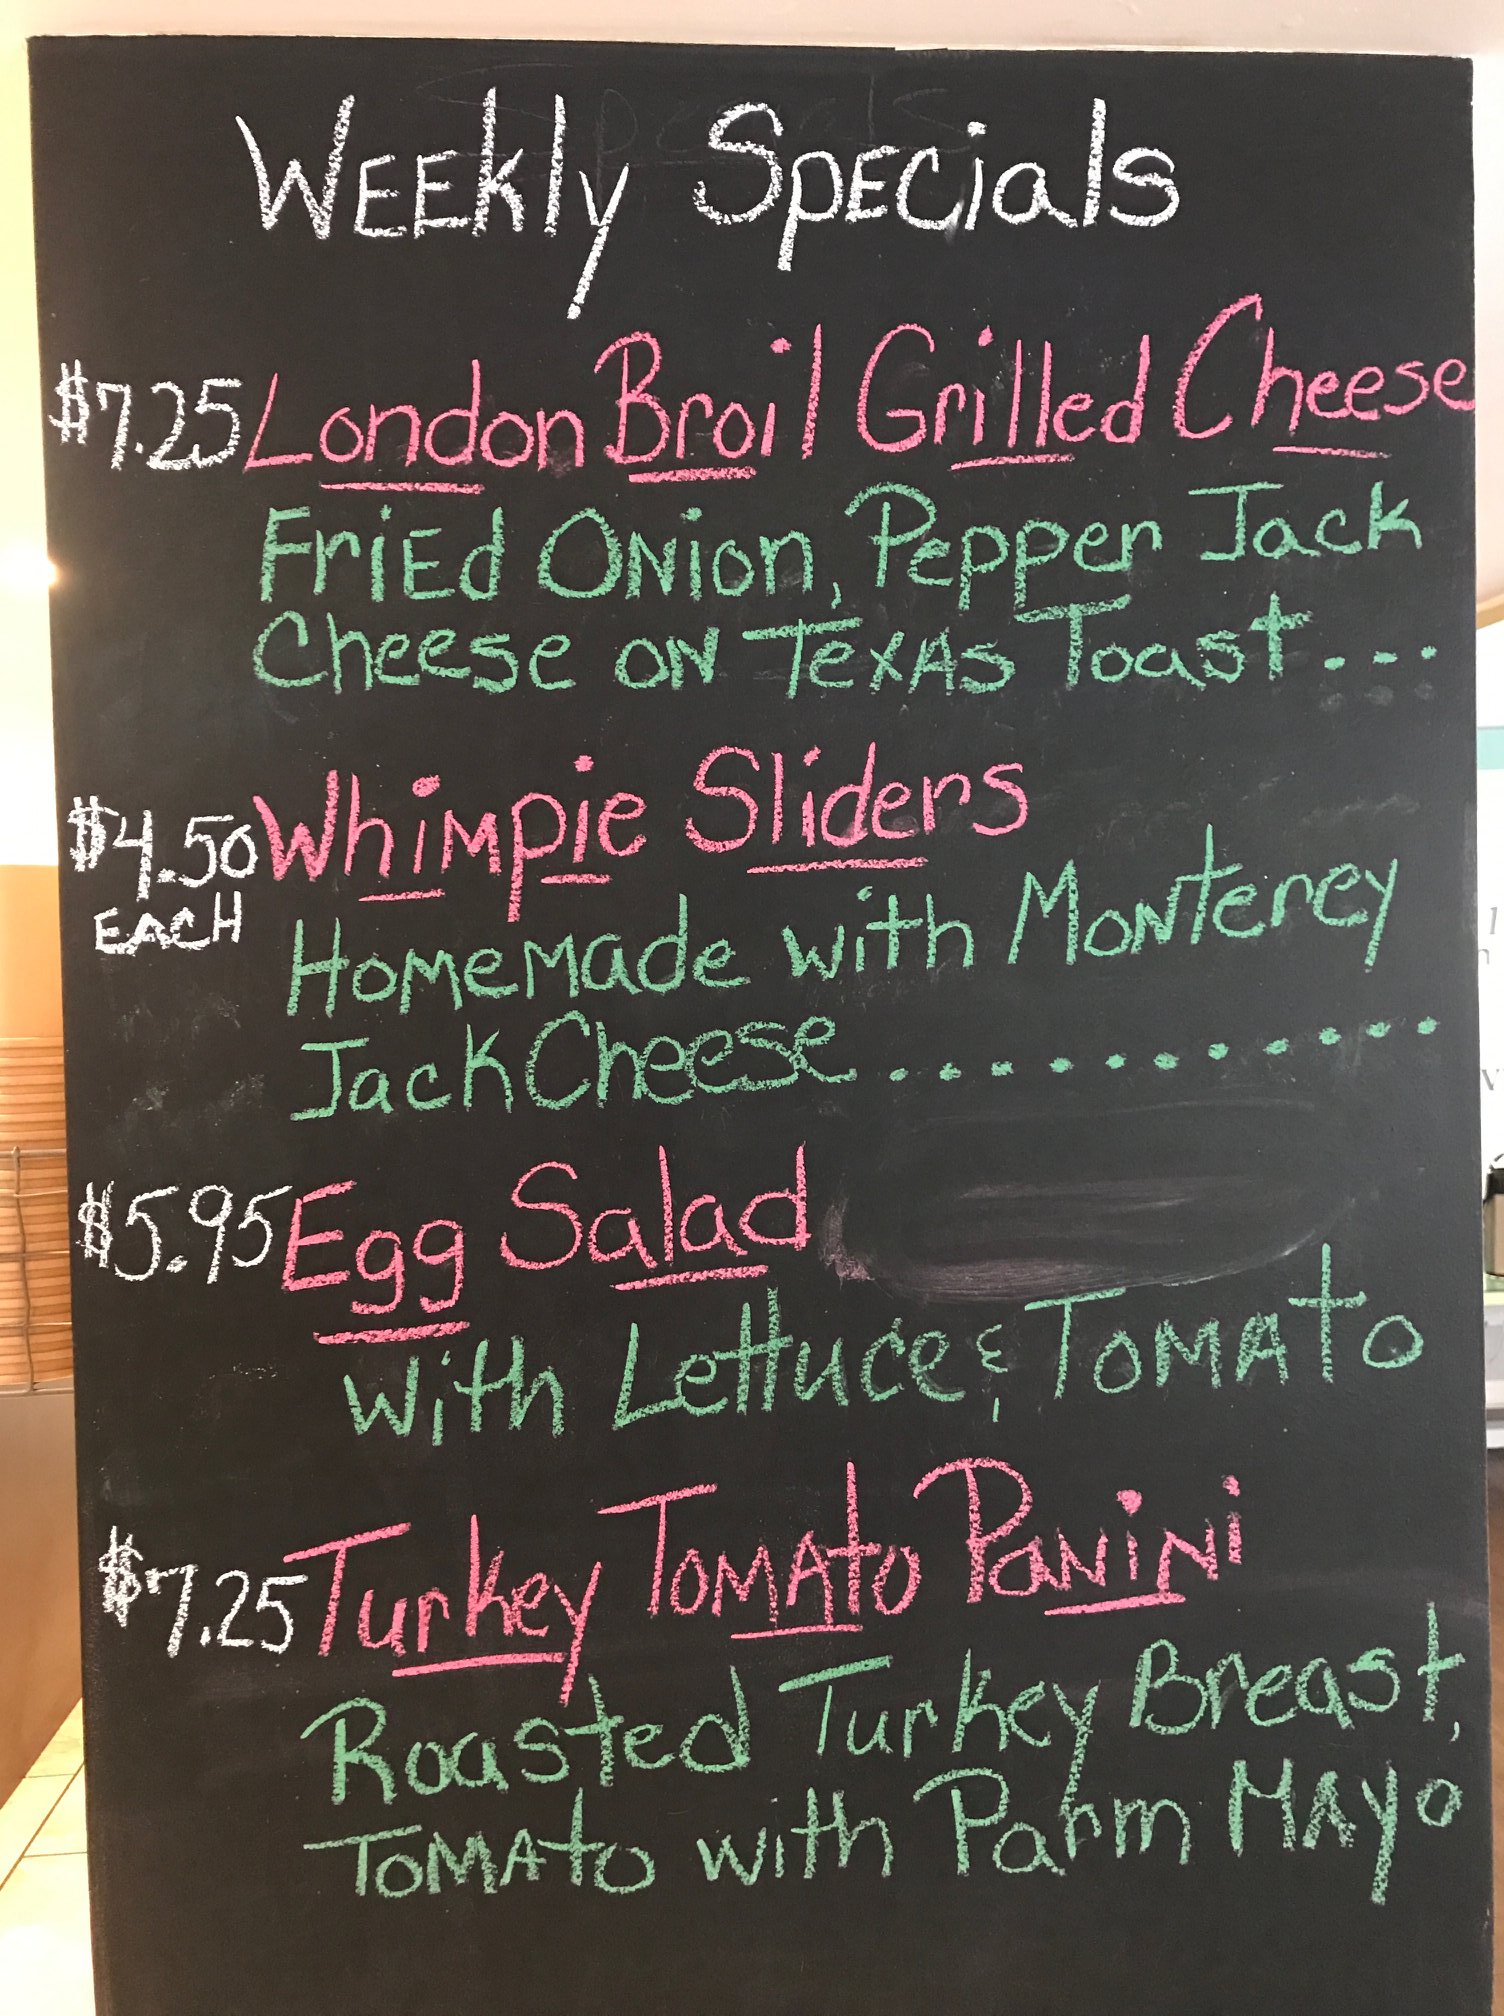 Weekly Specials
$7.25 London Broil Grilled Cheese
Fried Onion, Pepper Jack
Cheese on Texas Toast...
$4.50 Whimpie Sliders
EACH
Homemade with Monterey
Jack Cheese...........
$5.95 Egg Salad
with Lettuce & Tomato
$7.25 Turkey Tomato Panini
Roasted Turkey Breast,
Tomato with Parm Mayo